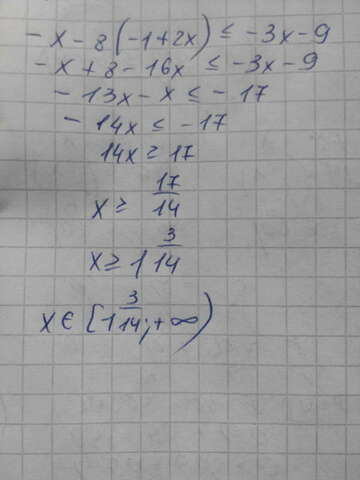 -x-8(-1+2x) ≤ -3x-9
-x+8-16x ≤ -3x-9
-13x-x ≤ -17
-14x ≤ -17
14x ≥ 17
x ≥ 17/14
x ≥ 1 3/14
x ∈ [1 3/14; +∞)